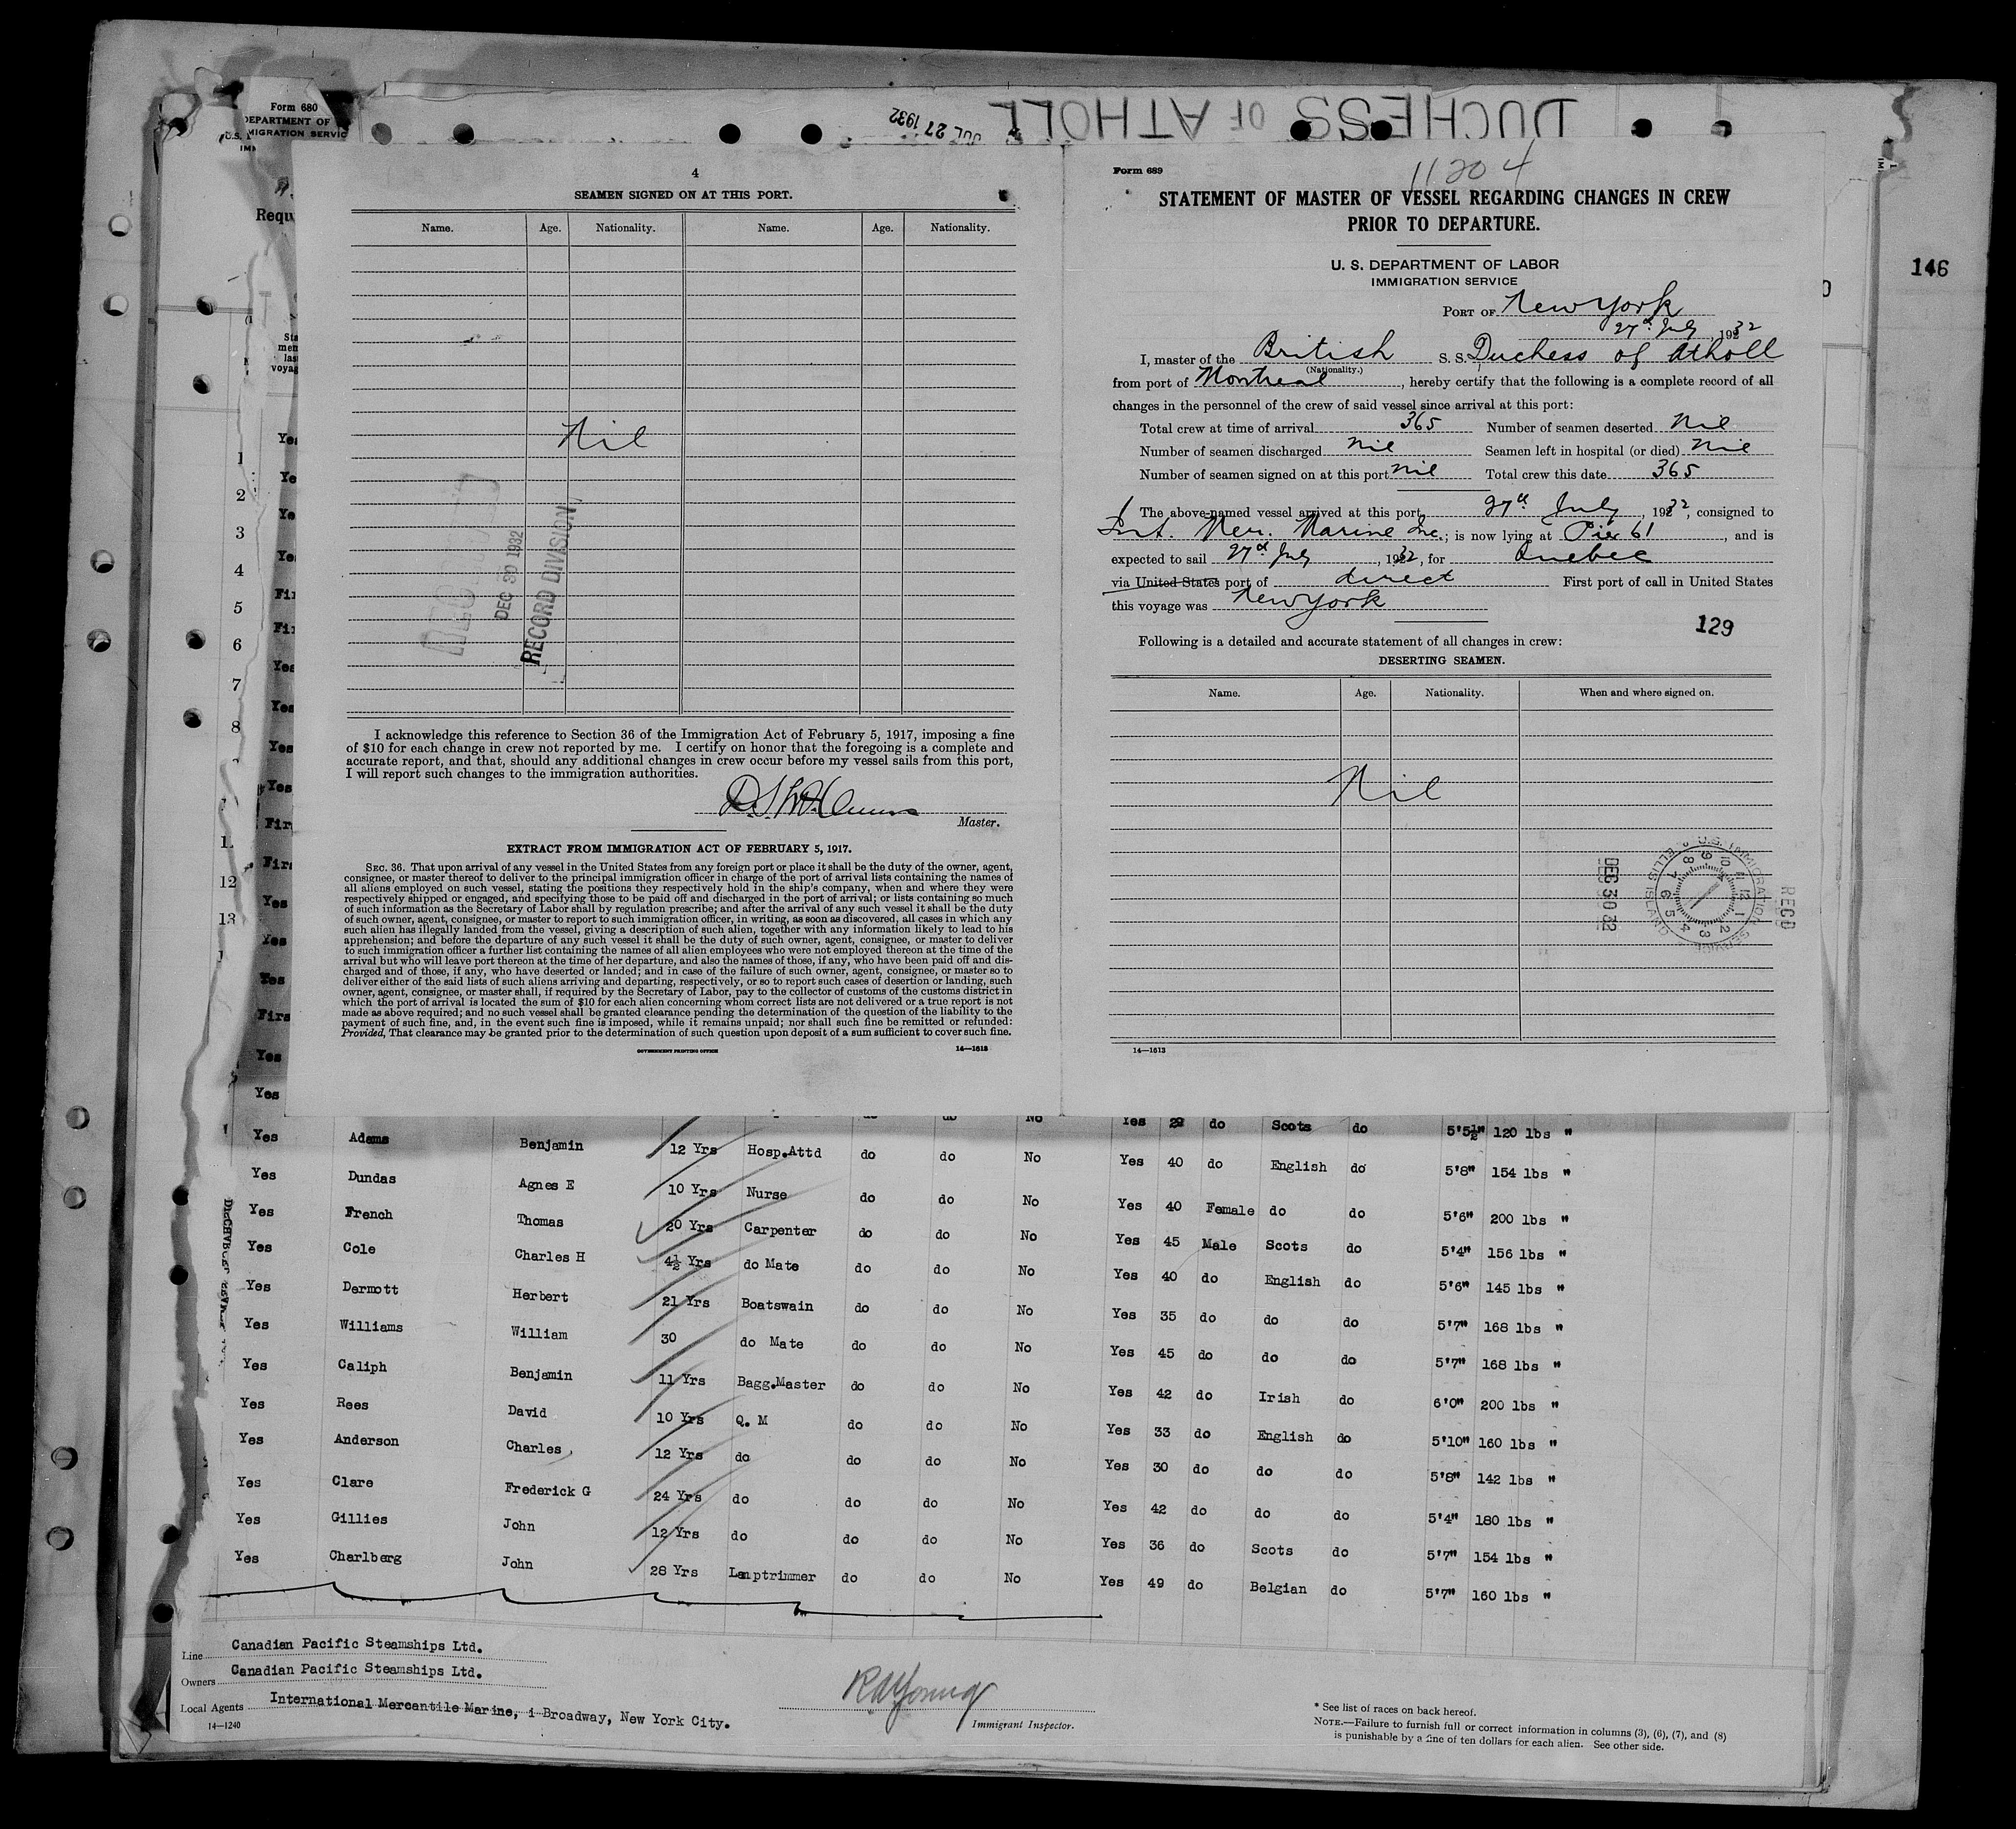 DUCHESS OF ATHOLL
JUL 27 1932
Form 680
DEPARTMENT OF
IMMIGRATION SERVIC
Requ
146
4
SEAMEN SIGNED ON AT THIS PORT.
Name. Age. Nationality. Name. Age. Nationality.
Nil
DEC 30 1932
RECORD DIVISION
I acknowledge this reference to Section 36 of the Immigration Act of February 5, 1917, imposing a fine
of $10 for each change in crew not reported by me. I certify on honor that the foregoing is a complete and
accurate report, and that, should any additional changes in crew occur before my vessel sails from this port,
I will report such changes to the immigration authorities.
Master.
EXTRACT FROM IMMIGRATION ACT OF FEBRUARY 5, 1917.
SEC. 36. That upon arrival of any vessel in the United States from any foreign port or place it shall be the duty of the owner, agent,
consignee, or master thereof to deliver to the principal immigration officer in charge of the port of arrival lists containing the names of
all aliens employed on such vessel, stating the positions they respectively hold in the ship's company, when and where they were
respectively shipped or engaged, and specifying those to be paid off and discharged in the port of arrival; or lists containing so much
of such information as the Secretary of Labor shall by regulation prescribe; and after the arrival of any such vessel it shall be the duty
of such owner, agent, consignee, or master to report to such immigration officer, in writing, as soon as discovered, all cases in which any
such alien has illegally landed from the vessel, giving a description of such alien, together with any information likely to lead to his
apprehension; and before the departure of any such vessel it shall be the duty of such owner, agent, consignee, or master to deliver
to such immigration officer a further list containing the names of all alien employees who were not employed thereon at the time of the
arrival but who will leave port thereon at the time of her departure, and also the names of those, if any, who have been paid off and dis-
charged and of those, if any, who have deserted or landed; and in case of the failure of such owner, agent, consignee, or master so to
deliver either of the said lists of such aliens arriving and departing, respectively, or so to report such cases of desertion or landing, such
owner, agent, consignee, or master shall, if required by the Secretary of Labor, pay to the collector of customs of the customs district in
which the port of arrival is located the sum of $10 for each alien concerning whom correct lists are not delivered or a true report is not
made as above required; and no such vessel shall be granted clearance pending the determination of the question of the liability to the
payment of such fine, and, in the event such fine is imposed, while it remains unpaid; nor shall such fine be remitted or refunded:
Provided, That clearance may be granted prior to the determination of such question upon deposit of a sum sufficient to cover such fine.
GOVERNMENT PRINTING OFFICE 14—1613
Form 689
11204
STATEMENT OF MASTER OF VESSEL REGARDING CHANGES IN CREW
PRIOR TO DEPARTURE.
U. S. DEPARTMENT OF LABOR
IMMIGRATION SERVICE
PORT OF New York
27th July 1932
I, master of the British S. S. Duchess of Atholl
(Nationality.)
from port of Montreal, hereby certify that the following is a complete record of all
changes in the personnel of the crew of said vessel since arrival at this port:
Total crew at time of arrival 365 Number of seamen deserted Nil
Number of seamen discharged Nil Seamen left in hospital (or died) Nil
Number of seamen signed on at this port nil Total crew this date 365
The above-named vessel arrived at this port 27th July, 1932, consigned to
Int. Mer. Marine Inc.; is now lying at Pier 61, and is
expected to sail 27th July, 1932, for Quebec
via United States port of direct First port of call in United States
this voyage was New York
129
Following is a detailed and accurate statement of all changes in crew:
DESERTING SEAMEN.
Name. Age. Nationality. When and where signed on.
Nil
DEC 30 32
U.S. IMMIGRATION SERVICE ELLIS ISLAND
RECD
14—1613
No Yes 29 do Scots do 5'5½" 120 lbs "
Yes Adams Benjamin 12 Yrs Hosp.Attd do do No Yes 40 do English do 5'8" 154 lbs "
Yes Dundas Agnes E 10 Yrs Nurse do do No Yes 40 Female do do 5'6" 200 lbs "
Yes French Thomas 20 Yrs Carpenter do do No Yes 45 Male Scots do 5'4" 156 lbs "
Yes Cole Charles H 4½ Yrs do Mate do do No Yes 40 do English do 5'6" 145 lbs "
Yes Dermott Herbert 21 Yrs Boatswain do do No Yes 35 do do do 5'7" 168 lbs "
Yes Williams William 30 do Mate do do No Yes 45 do do do 5'7" 168 lbs "
Yes Caliph Benjamin 11 Yrs Bagg.Master do do No Yes 42 do Irish do 6'0" 200 lbs "
Yes Rees David 10 Yrs Q. M do do No Yes 33 do English do 5'10" 160 lbs "
Yes Anderson Charles 12 Yrs do do do No Yes 30 do do do 5'8" 142 lbs "
Yes Clare Frederick G 24 Yrs do do do No Yes 42 do do do 5'4" 180 lbs "
Yes Gillies John 12 Yrs do do do No Yes 36 do Scots do 5'7" 154 lbs "
Yes Charlberg John 28 Yrs Lamptrimmer do do No Yes 49 do Belgian do 5'7" 160 lbs "
Line Canadian Pacific Steamships Ltd.
Owners Canadian Pacific Steamships Ltd.
Local Agents International Mercantile Marine, 1 Broadway, New York City.
14—1240
RAYoung
Immigrant Inspector.
* See list of races on back hereof.
NOTE.—Failure to furnish full or correct information in columns (3), (6), (7), and (8)
is punishable by a fine of ten dollars for each alien. See other side.